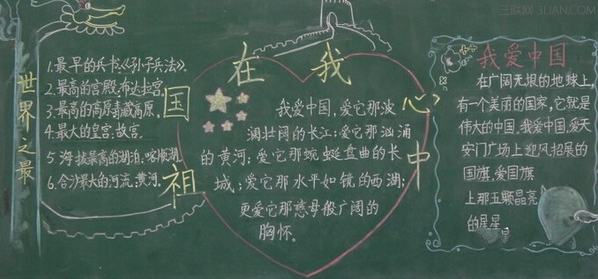 三联网 3LIAN.COM
祖国在我心中
世界之最
1.最早的兵书《孙子兵法》.
2.最高的宫殿.布达拉宫.
3.最高的高原.青藏高原.
4.最大的皇宫.故宫.
5.海拔最高的湖泊.喀顺湖.
6.含沙最大的河流.黄河.
我爱中国,爱它那波
澜壮阔的长江;爱它那汹涌
的黄河;爱它那蜿蜒直曲的长
城;爱它那水平如镜的西湖;
更爱它那慈母般广阔的
胸怀。
我爱中国
在广阔无垠的地球上,
有一个美丽的国家,它就是
伟大的中国,我爱中国,爱天
安门广场上迎风招展的
国旗,爱国旗
上那五颗晶亮
的星星